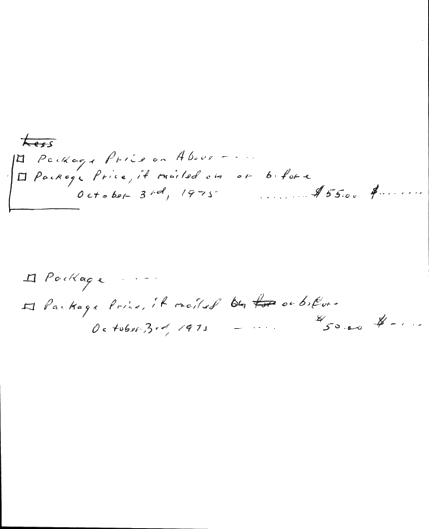 Less
□ Package Price on Above - ...
□ Package Price, if mailed on or before
October 3rd, 1975 ......... $55.00 $.......
□ Package ....
□ Package Price, if mailed on for or before
October 3rd, 1975 - .... $50.00 $-....